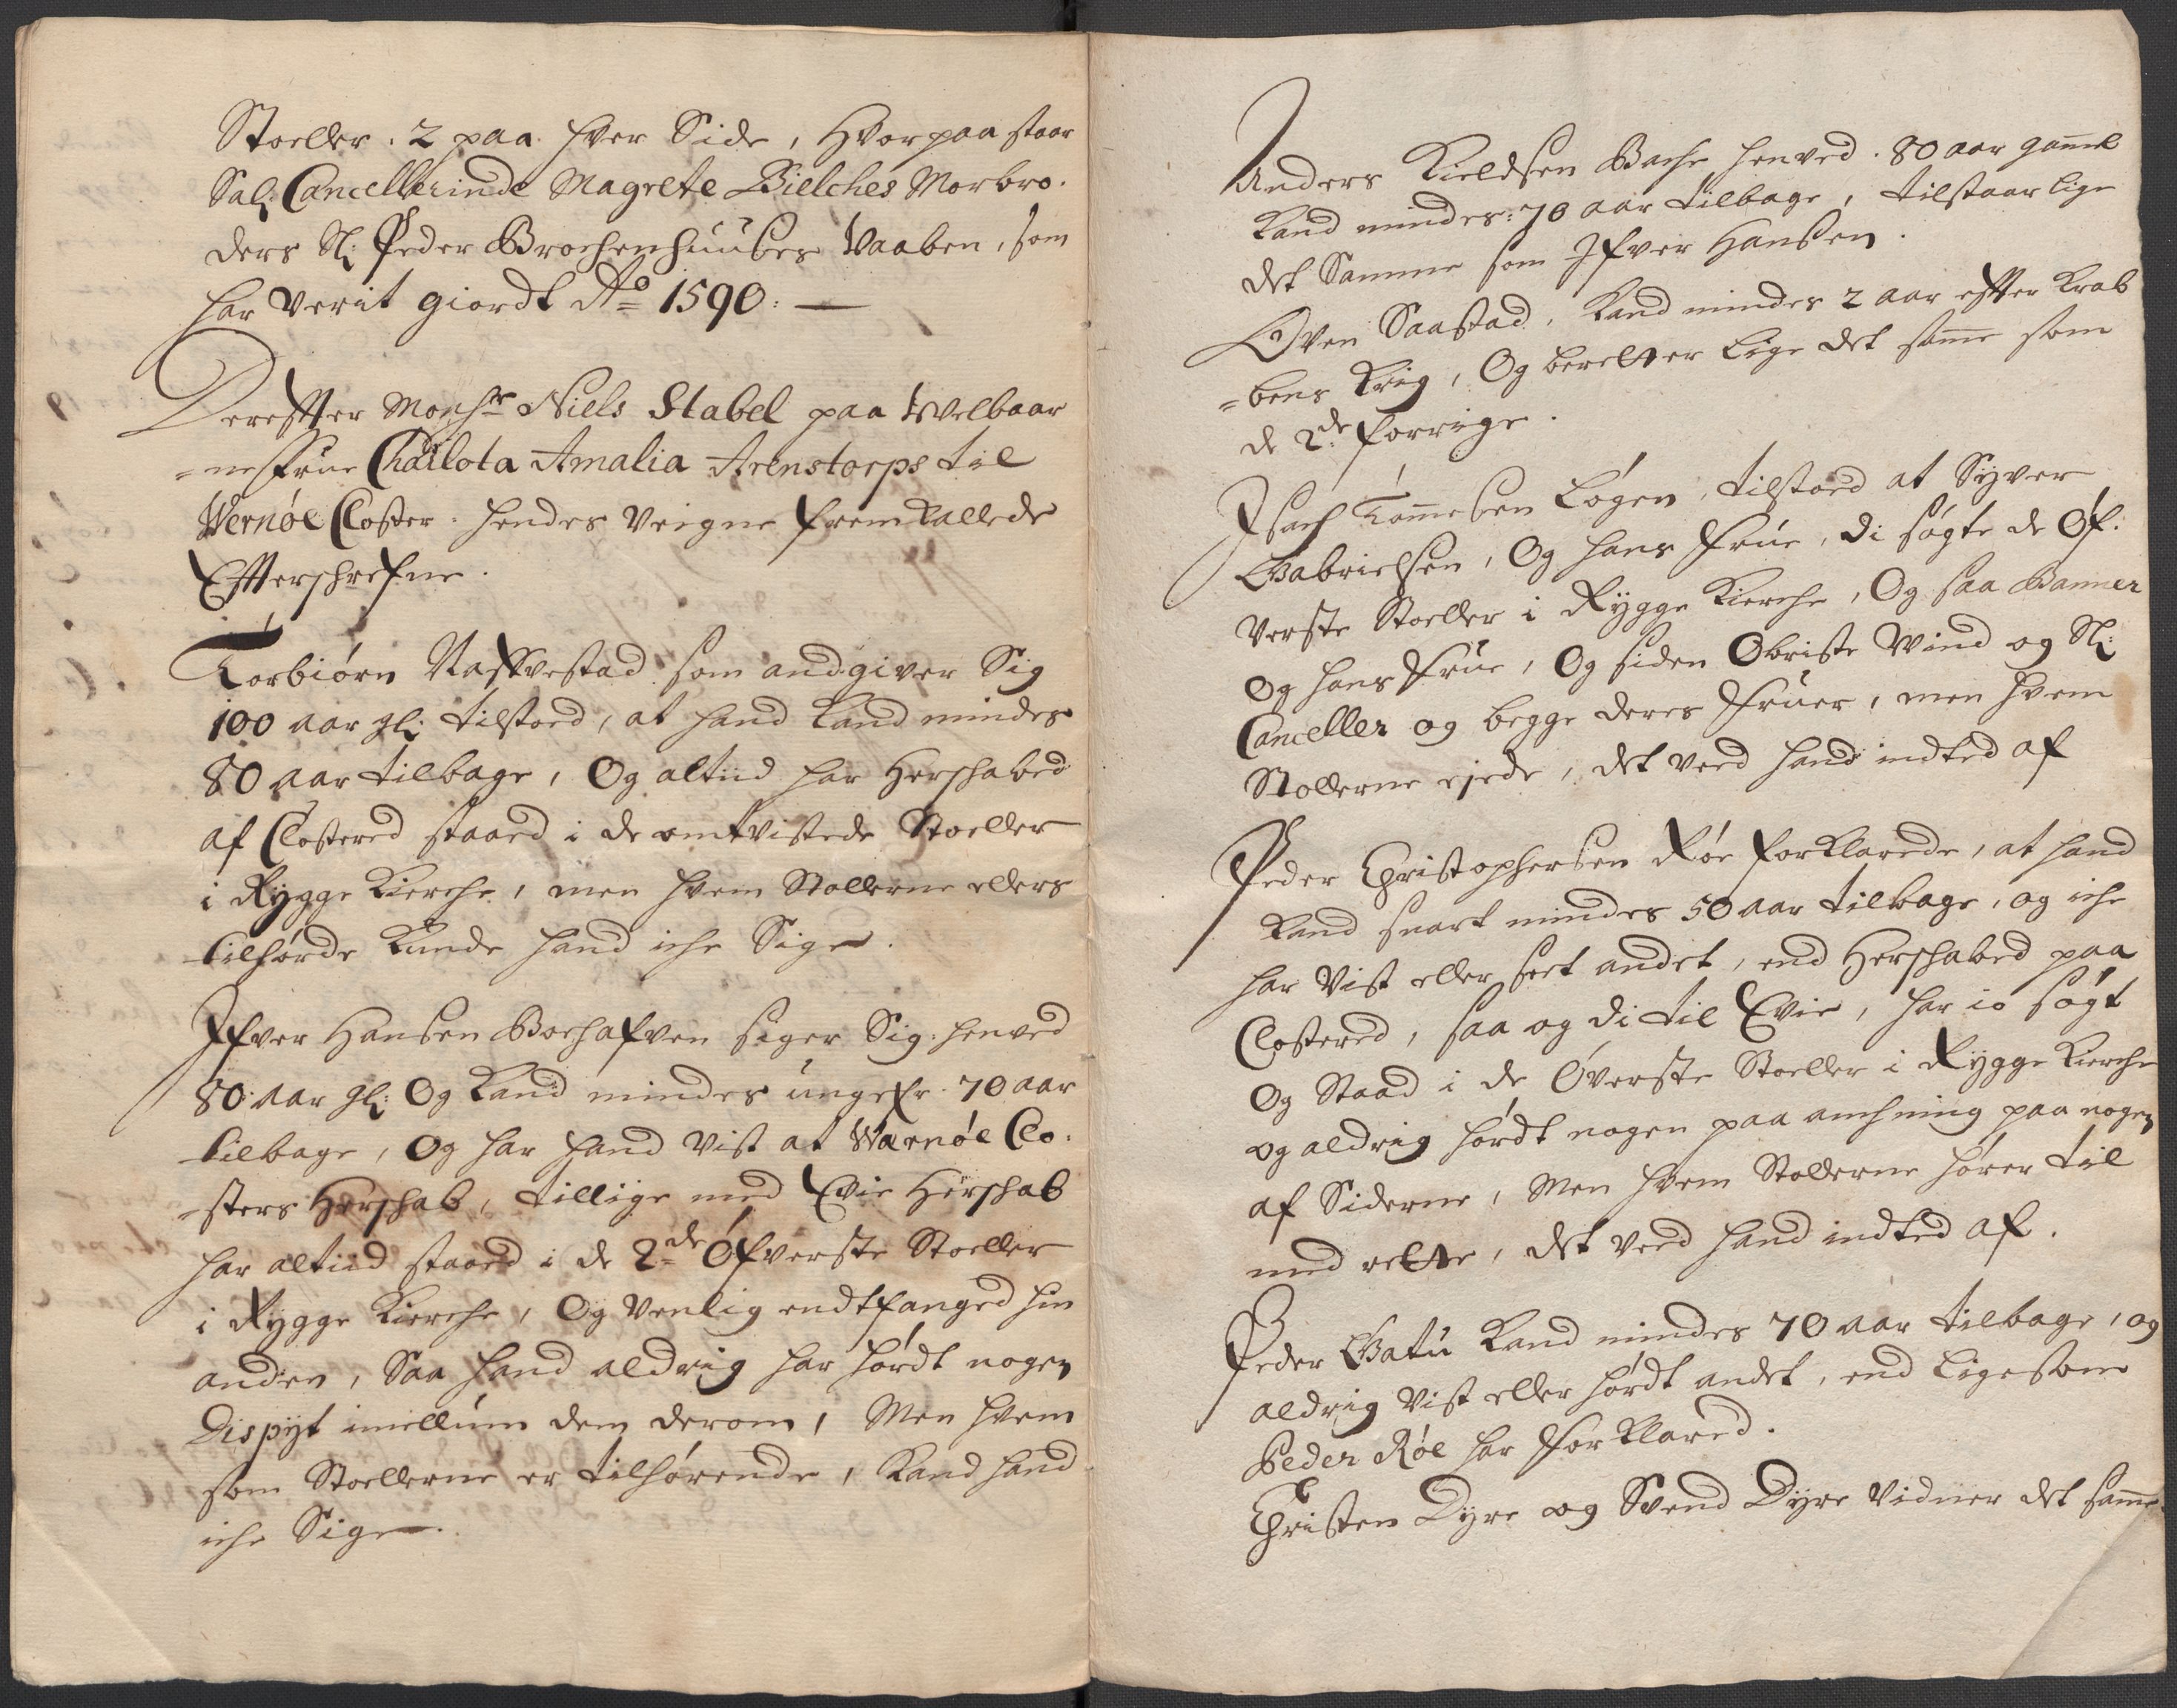 Stoeller. 2 paa hver Side, Hvorpaa staar
Sal: Cancellerinde Magrete Bielches Morbro-
ders Sl: Peder Brochenhuuses Vaaben, som
har verit giordt Ao 1590: —
Derefter Monsr Niels Stabel paa Welbaar
=ne Frue Charlota Amalia Arenstorps til
Wernøe Closter. hendes Veigne fremkallede
Efterschrefne.
Torbiørn Raskestad som andgiver Sig
100 aar gl: tilstoed, at hand Kand mindes
80 aar tilbage, Og altiid har Herschabed
af Clostered staaed i de omtvistede Stoeller
i Rygge Kierche, men hvem Stollerne ellers
tilhørde Kunde hand iche Sige.
Ifver Hansen Bochafven siger Sig henved
80 aar gl: Og Kand mindes ungefr. 70 aar
tilbage, Og har hand vist at Warnøe Clo-
=sters Herschab, tillige med Evie Herschab
har altiid staaed i de 2de Øfverste Stoeller
i Rygge Kierche, Og venlig endtfanged hin
anden, Saa hand aldrig har hørdt nogen
Dispyt imellum dem derom, Men hvem
som Stoellerne er tilhørende, Kand hand
iche Sige.
Anders Kieldsen Bache henved. 80 aar gammel
Kand mindes: 70 aar tilbage, tilstaar lige
det Samme som Ifver Hansen.
Oven Saastad, Kand mindes 2 aar efter Krab
=bens Krig, Og beretter lige det samme som
de 2de forrige.
Isach Tommesen Løgen, tilstoed at Syver
Gabrielsen, Og hans Frue, di søgte de Øf-
verste Stoeller i Rygge Kierche, Og saa Banner
Og hans Frue, Og siden Obriste Wind og Sl:
Canceller og begge deres Fruer, men hvem
Stollerne ejede, det veed hand indted af
Peder Christophersen Røe forklarede, at hand
Kand snart mindes 50 aar tilbage, og iche
har vist eller seet andet, end Herschabed paa
Clostered, saa og di til Evie, har io søgt
Og Staad i de Øverste Stoeller i Rygge Kierche
og aldrig hørdt nogen paa anchning paa nogen
af Siderne, Men hvem Stollerne hører til
med rette, det veed hand indted af.
Peder Gatu Kand mindes 70 aar tilbage, og
aldrig vist eller hørdt andet, end ligesom
Peder Røe har forklared.
Christen Dyre og Svend Dyre vidner det samme.